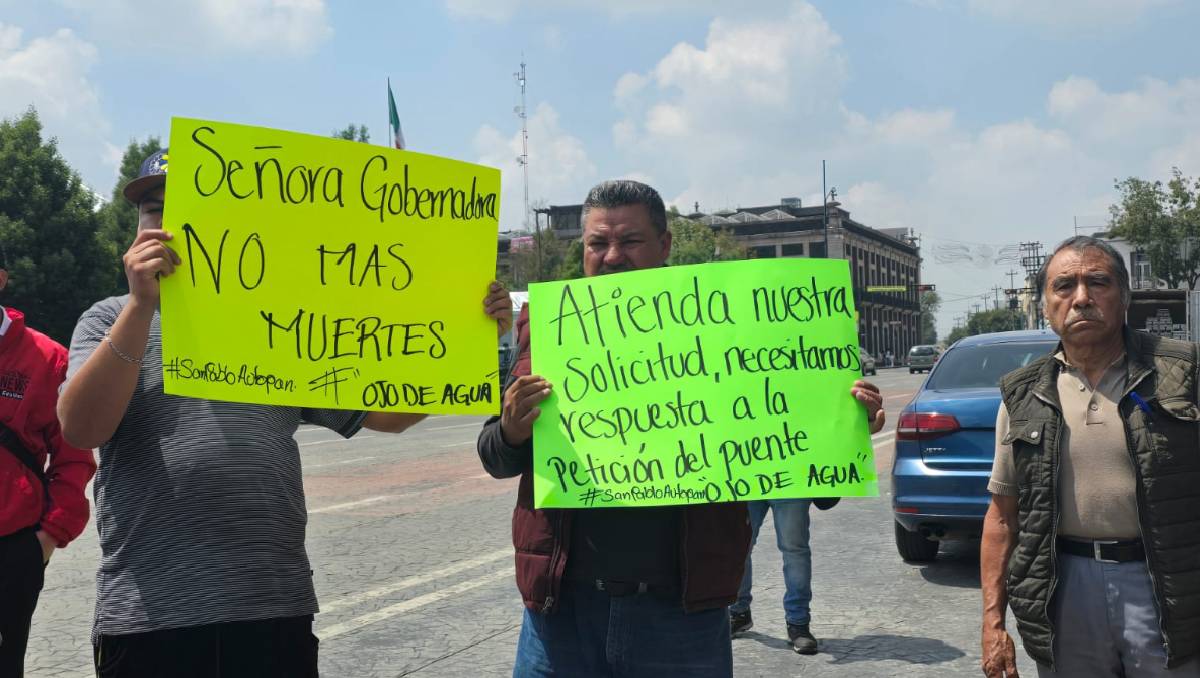 Señora Gobernadora
NO MAS
MUERTES
#SanPabloAutopan. # "OJO DE AGUA"
Atienda nuestra
Solicitud, necesitamos
respuesta a la
Petición del puente
#SanPabloAutopan "OJO DE AGUA".
NEWS
JETTA